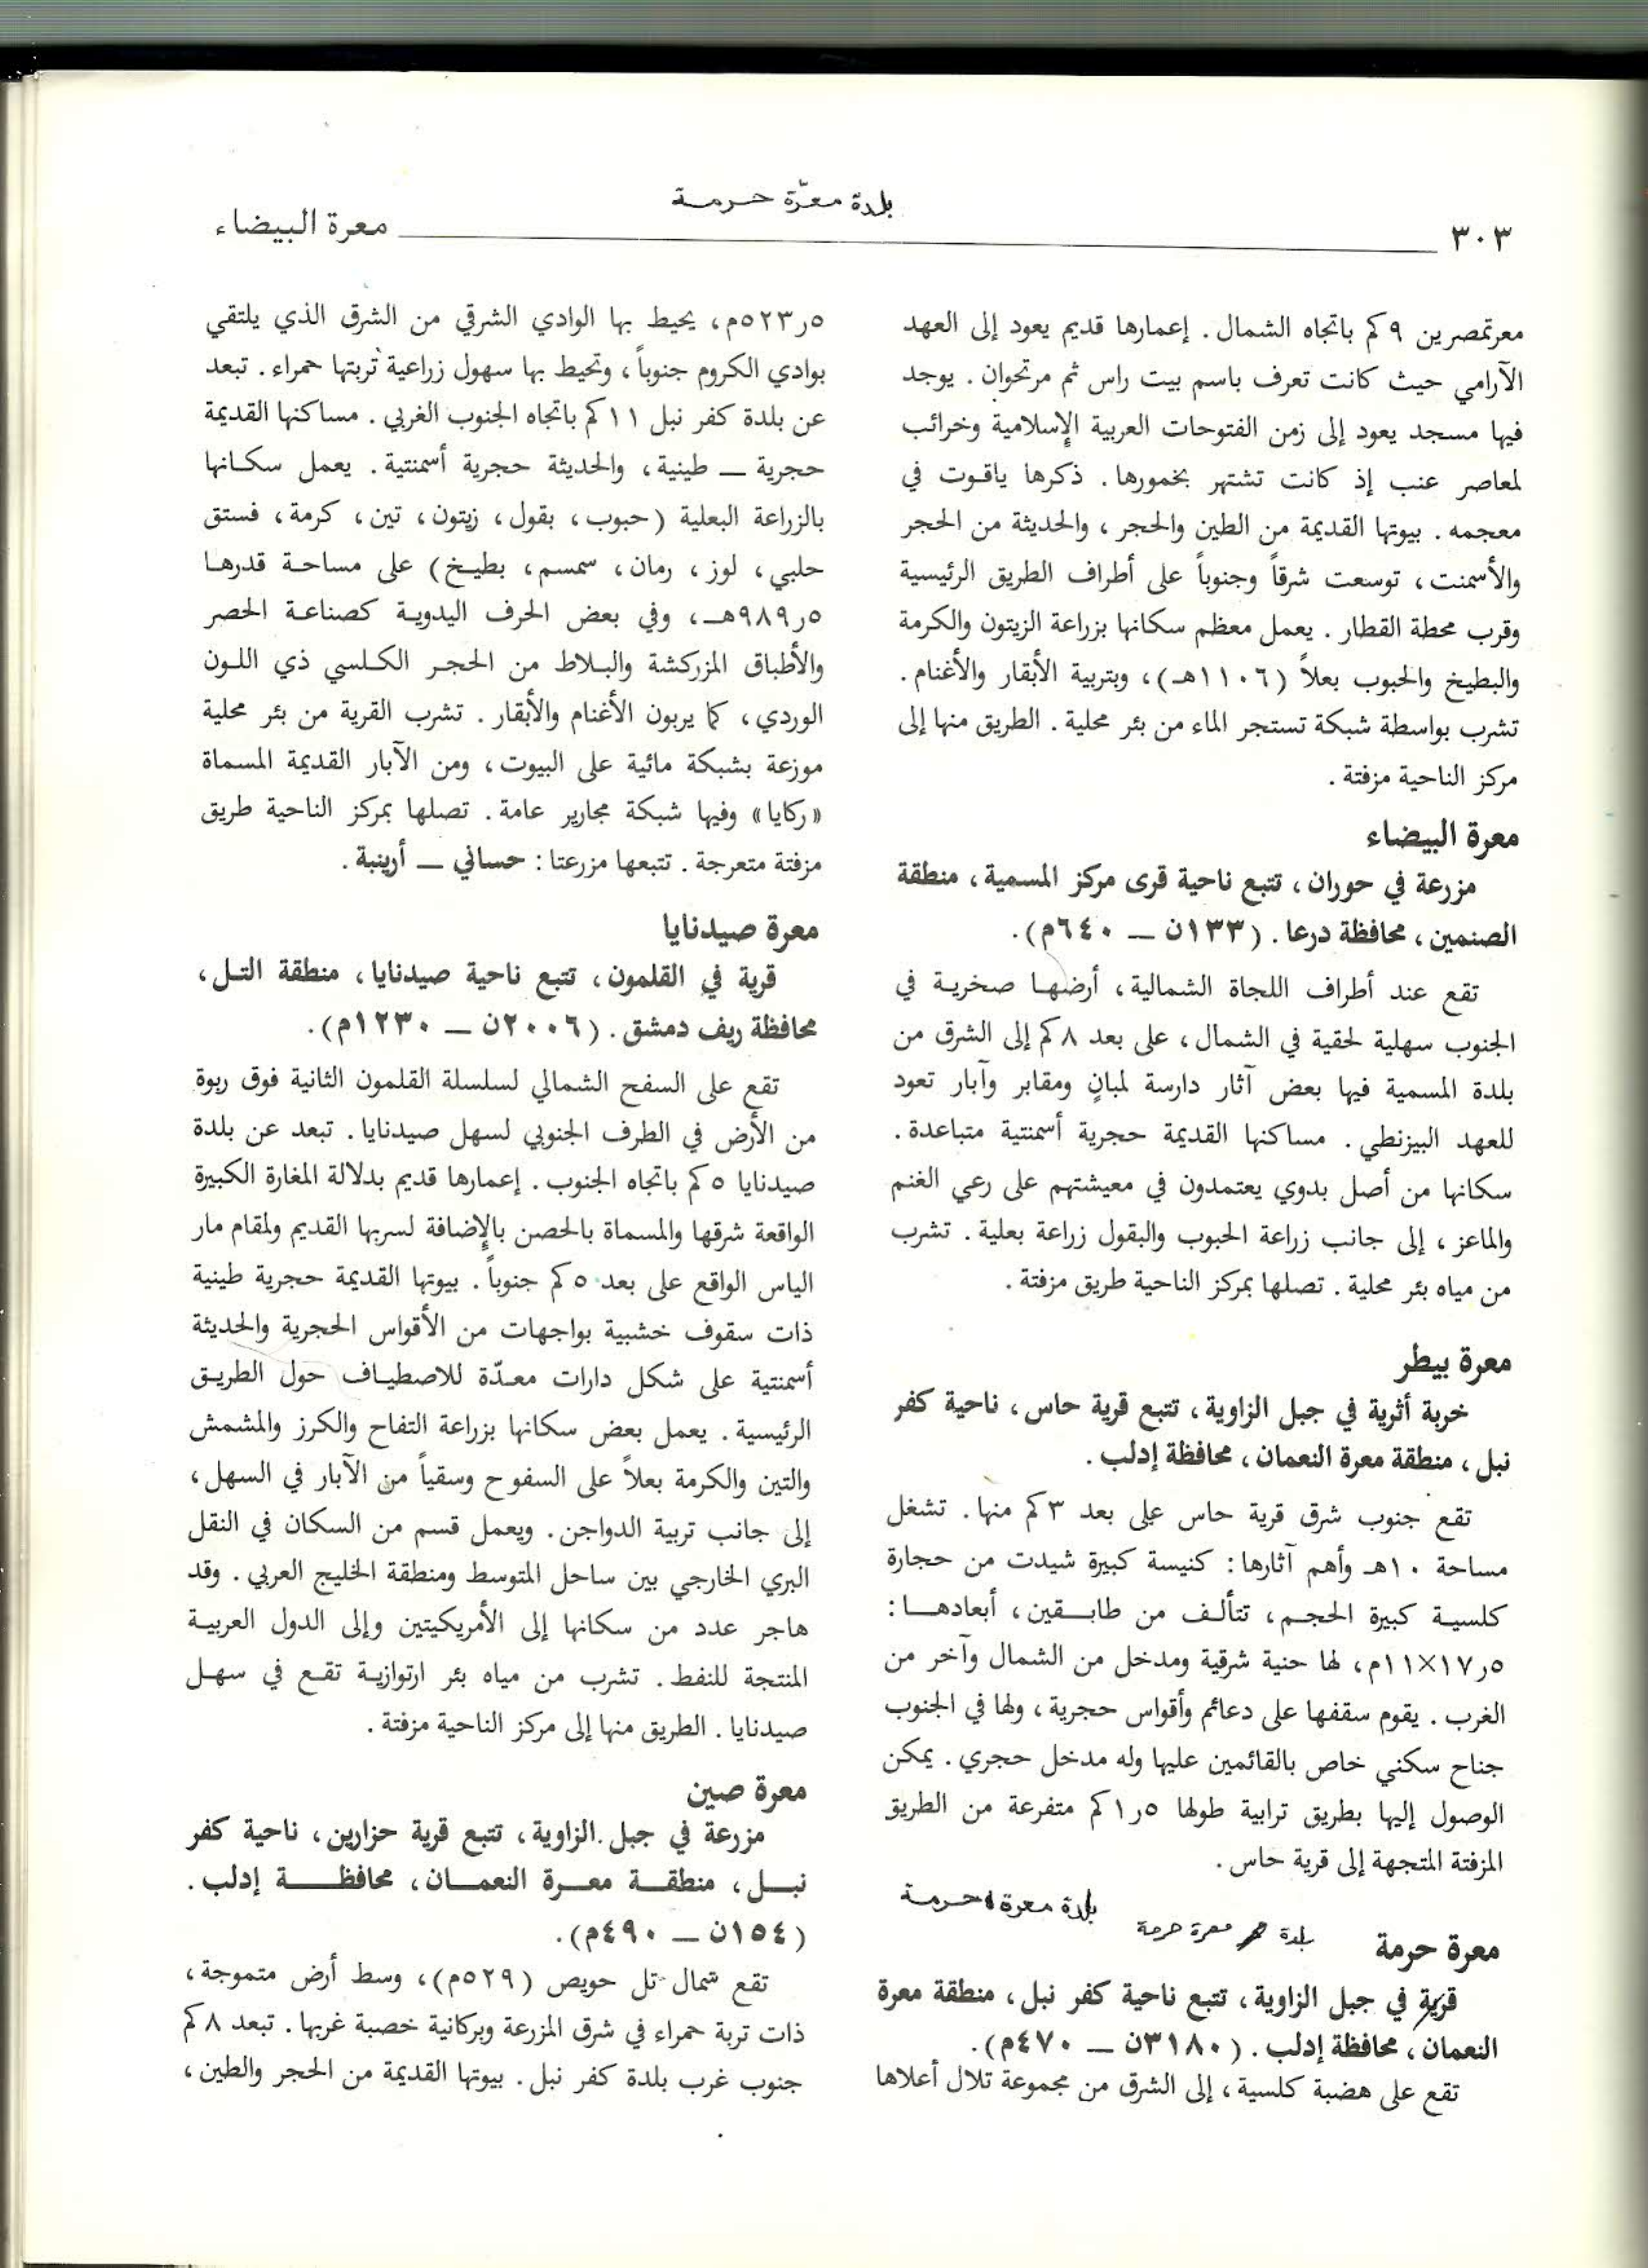 بلدة معرّة حرمة
٣٠٣
معرة البيضاء
معرتمصرين ٩ كم باتجاه الشمال. إعمارها قديم يعود إلى العهد
الآرامي حيث كانت تعرف باسم بيت راس ثم مرتحوان. يوجد
فيها مسجد يعود إلى زمن الفتوحات العربية الإسلامية وخرائب
لمعاصر عنب إذ كانت تشتهر بخمورها. ذكرها ياقوت في
معجمه. بيوتها القديمة من الطين والحجر، والحديثة من الحجر
والأسمنت، توسعت شرقاً وجنوباً على أطراف الطريق الرئيسية
وقرب محطة القطار. يعمل معظم سكانها بزراعة الزيتون والكرمة
والبطيخ والحبوب بعلاً (١١٠٦هـ)، وبتربية الأبقار والأغنام.
تشرب بواسطة شبكة تستجر الماء من بئر محلية. الطريق منها إلى
مركز الناحية مزفتة.
معرة البيضاء
مزرعة في حوران، تتبع ناحية قرى مركز المسمية، منطقة
الصنمين، محافظة درعا. (١٣٣ن ــ ٦٤٠م).
تقع عند أطراف اللجاة الشمالية، أرضها صخرية في
الجنوب سهلية لحقية في الشمال، على بعد ٨ كم إلى الشرق من
بلدة المسمية فيها بعض آثار دارسة لمبانٍ ومقابر وآبار تعود
للعهد البيزنطي. مساكنها القديمة حجرية أسمنتية متباعدة.
سكانها من أصل بدوي يعتمدون في معيشتهم على رعي الغنم
والماعز، إلى جانب زراعة الحبوب والبقول زراعة بعلية. تشرب
من مياه بئر محلية. تصلها بمركز الناحية طريق مزفتة.
معرة بيطر
خربة أثرية في جبل الزاوية، تتبع قرية حاس، ناحية كفر
نبل، منطقة معرة النعمان، محافظة إدلب.
تقع جنوب شرق قرية حاس على بعد ٣ كم منها. تشغل
مساحة ١٠هـ وأهم آثارها: كنيسة كبيرة شيدت من حجارة
كلسية كبيرة الحجم، تتألف من طابقين، أبعادها:
٥ر١٧×١١م، لها حنية شرقية ومدخل من الشمال وآخر من
الغرب. يقوم سقفها على دعائم وأقواس حجرية، ولها في الجنوب
جناح سكني خاص بالقائمين عليها وله مدخل حجري. يمكن
الوصول إليها بطريق ترابية طولها ٥ر١ كم متفرعة من الطريق
المزفتة المتجهة إلى قرية حاس.
بلدة معرة حرمة
معرة حرمة بلدة معرة حرمة
قرية في جبل الزاوية، تتبع ناحية كفر نبل، منطقة معرة
النعمان، محافظة إدلب. (٣١٨٠ن ــ ٤٧٠م).
تقع على هضبة كلسية، إلى الشرق من مجموعة تلال أعلاها
٥ر٥٢٣م، يحيط بها الوادي الشرقي من الشرق الذي يلتقي
بوادي الكروم جنوباً، وتحيط بها سهول زراعية تربتها حمراء. تبعد
عن بلدة كفر نبل ١١ كم باتجاه الجنوب الغربي. مساكنها القديمة
حجرية ــ طينية، والحديثة حجرية أسمنتية. يعمل سكانها
بالزراعة البعلية (حبوب، بقول، زيتون، تين، كرمة، فستق
حلبي، لوز، رمان، سمسم، بطيخ) على مساحة قدرها
٥ر٩٨٩هـ، وفي بعض الحرف اليدوية كصناعة الحصر
والأطباق المزركشة والبلاط من الحجر الكلسي ذي اللون
الوردي، كما يربون الأغنام والأبقار. تشرب القرية من بئر محلية
موزعة بشبكة مائية على البيوت، ومن الآبار القديمة المسماة
«ركايا» وفيها شبكة مجارير عامة. تصلها بمركز الناحية طريق
مزفتة متعرجة. تتبعها مزرعتا: حساني ــ أرينبة.
معرة صيدنايا
قرية في القلمون، تتبع ناحية صيدنايا، منطقة التل،
محافظة ريف دمشق. (٢٠٠٦ن ــ ١٢٣٠م).
تقع على السفح الشمالي لسلسلة القلمون الثانية فوق ربوة
من الأرض في الطرف الجنوبي لسهل صيدنايا. تبعد عن بلدة
صيدنايا ٥ كم باتجاه الجنوب. إعمارها قديم بدلالة المغارة الكبيرة
الواقعة شرقها والمسماة بالحصن بالإضافة لسربها القديم ولمقام مار
الياس الواقع على بعد ٥ كم جنوباً. بيوتها القديمة حجرية طينية
ذات سقوف خشبية بواجهات من الأقواس الحجرية والحديثة
أسمنتية على شكل دارات معدّة للاصطياف حول الطريق
الرئيسية. يعمل بعض سكانها بزراعة التفاح والكرز والمشمش
والتين والكرمة بعلاً على السفوح وسقياً من الآبار في السهل،
إلى جانب تربية الدواجن. ويعمل قسم من السكان في النقل
البري الخارجي بين ساحل المتوسط ومنطقة الخليج العربي. وقد
هاجر عدد من سكانها إلى الأمريكيتين وإلى الدول العربية
المنتجة للنفط. تشرب من مياه بئر ارتوازية تقع في سهل
صيدنايا. الطريق منها إلى مركز الناحية مزفتة.
معرة صين
مزرعة في جبل الزاوية، تتبع قرية حزارين، ناحية كفر
نبل، منطقة معرة النعمان، محافظة إدلب.
(١٥٤ن ــ ٤٩٠م).
تقع شمال تل حويص (٥٢٩م)، وسط أرض متموجة،
ذات تربة حمراء في شرق المزرعة وبركانية خصبة غربها. تبعد ٨ كم
جنوب غرب بلدة كفر نبل. بيوتها القديمة من الحجر والطين،